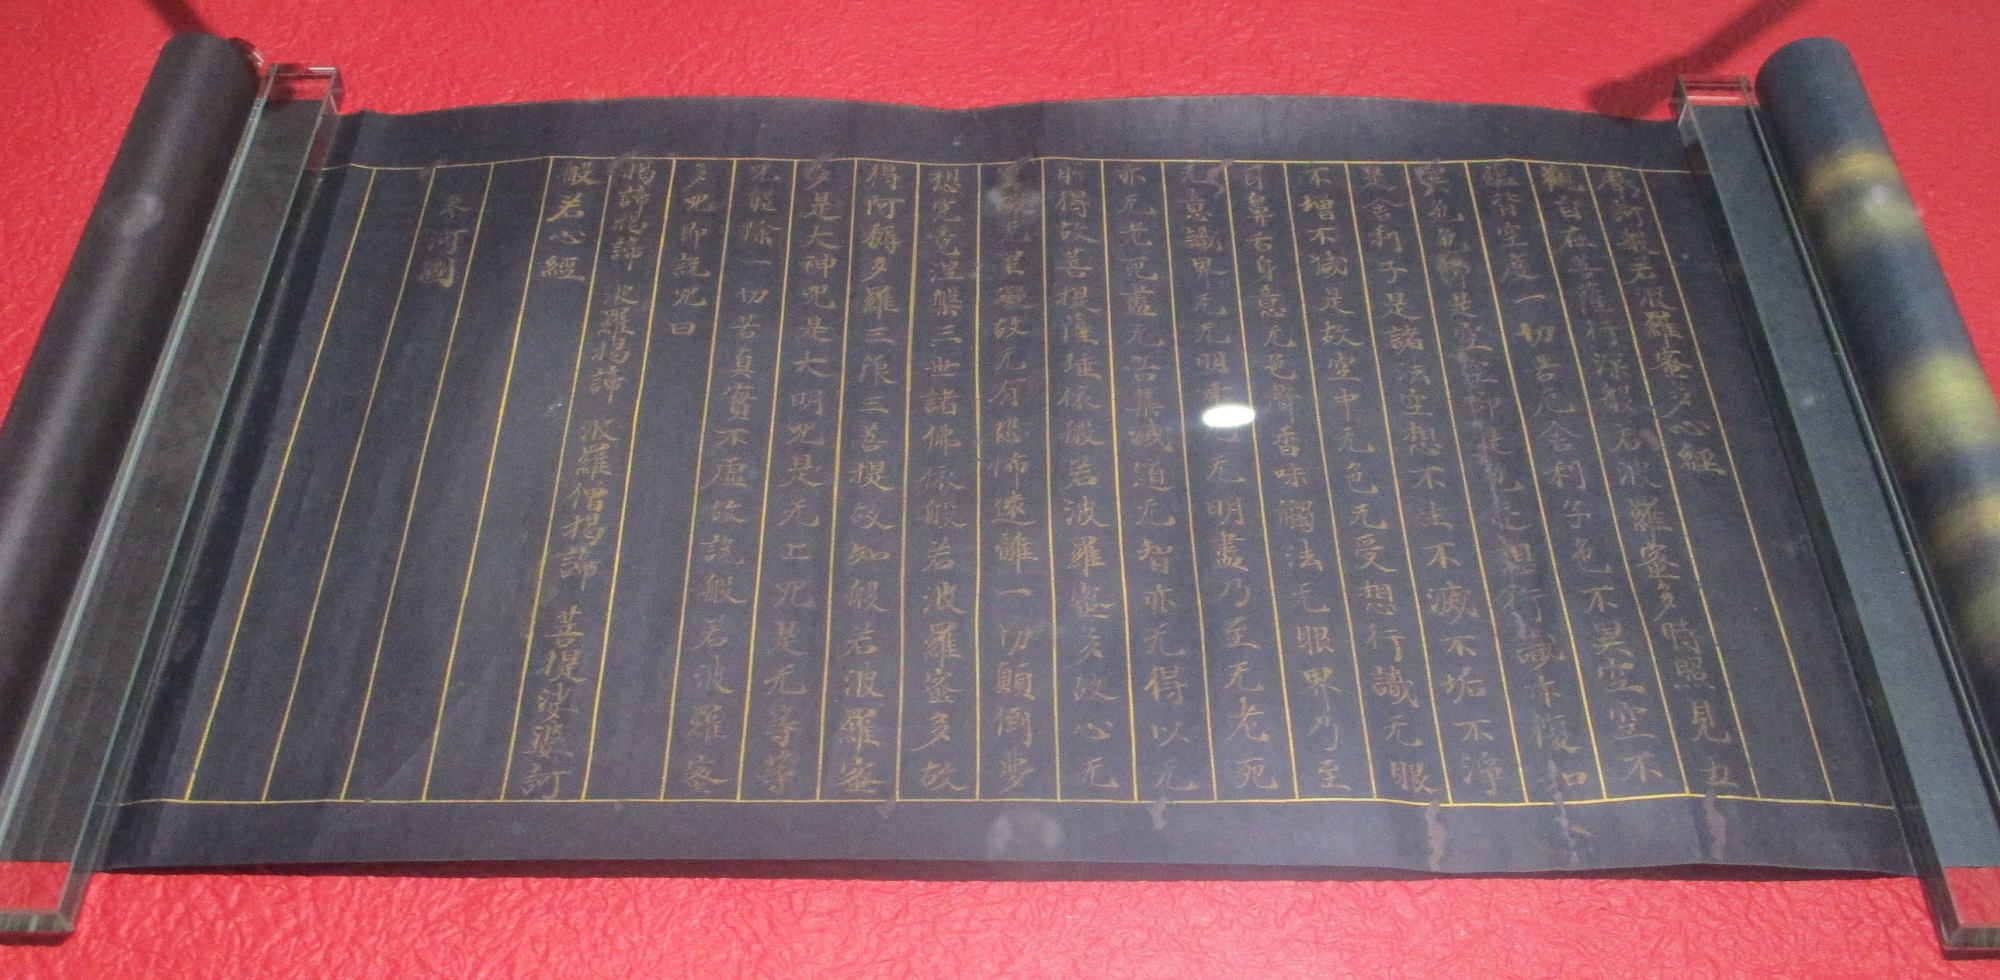 摩訶般若波羅蜜多心經
觀自在菩薩行深般若波羅蜜多時照見五
蘊皆空度一切苦厄舍利子色不異空空不
異色色即是空空即是色受想行識亦復如
是舍利子是諸法空想不生不滅不垢不淨
不增不減是故空中无色无受想行識无眼
耳鼻舌身意无色聲香味觸法无眼界乃至
无意識界无无明亦无无明盡乃至无老死
亦无老死盡无苦集滅道无智亦无得以无
所得故菩提薩埵依般若波羅蜜多故心无
罣礙故无有恐怖遠離一切顛倒夢
想究竟涅槃三世諸佛依般若波羅蜜多故
得阿耨多羅三藐三菩提故知般若波羅蜜
多是大神咒是大明咒是无上咒是无等等
咒能除一切苦真實不虛故說般若波羅蜜
多咒即說咒曰
揭諦揭諦 波羅揭諦 波羅僧揭諦 菩提娑婆訶
般若心經
參河國